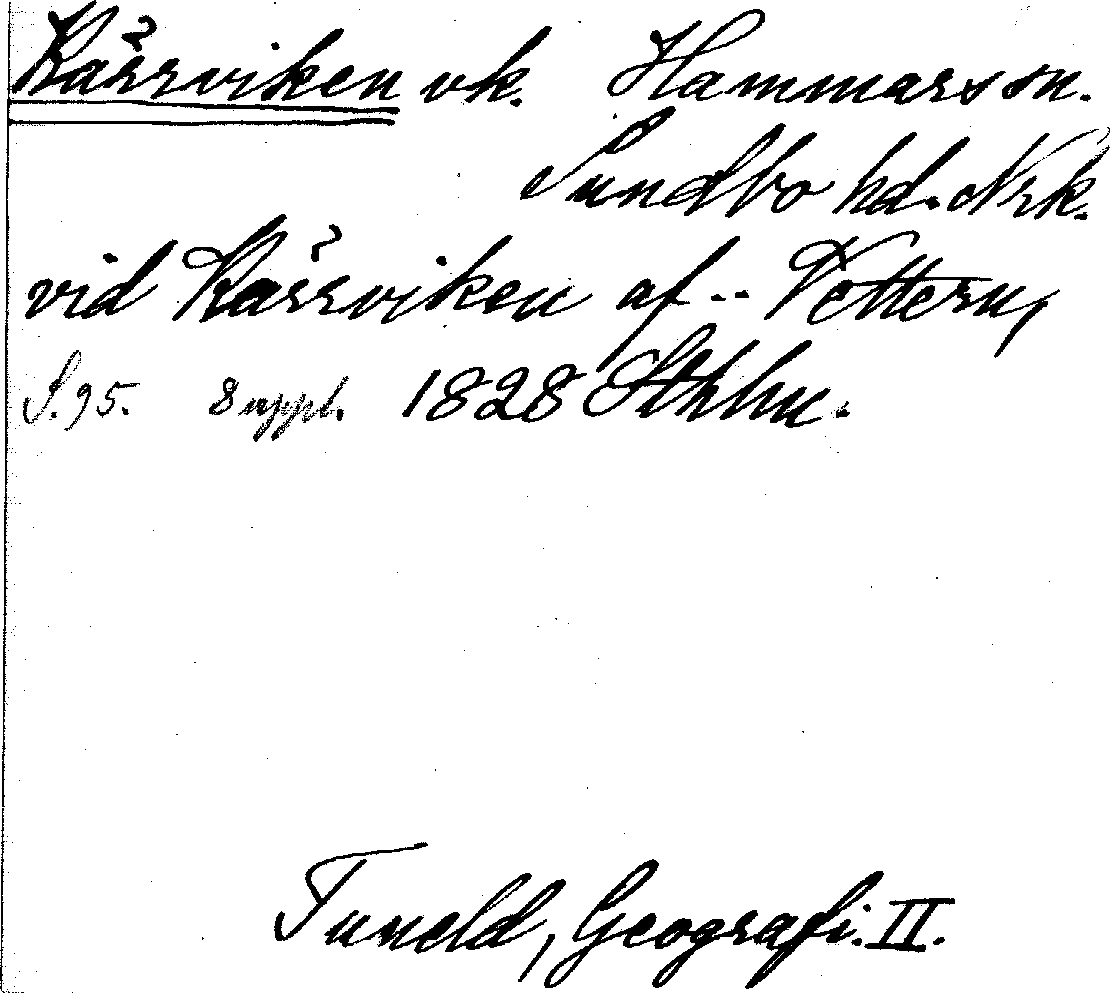 Kärrviken vk. Hammars sn.
Sundbo hd. Nrk.
vid Kärrviken af -- Vettern,
S. 95. 8 uppl. 1828 Sthlm.
Tuneld, Geografi. II.